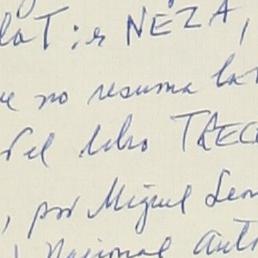 NEZA,
no resuma la
del libro TREC
, por Miguel León
Nacional Autó